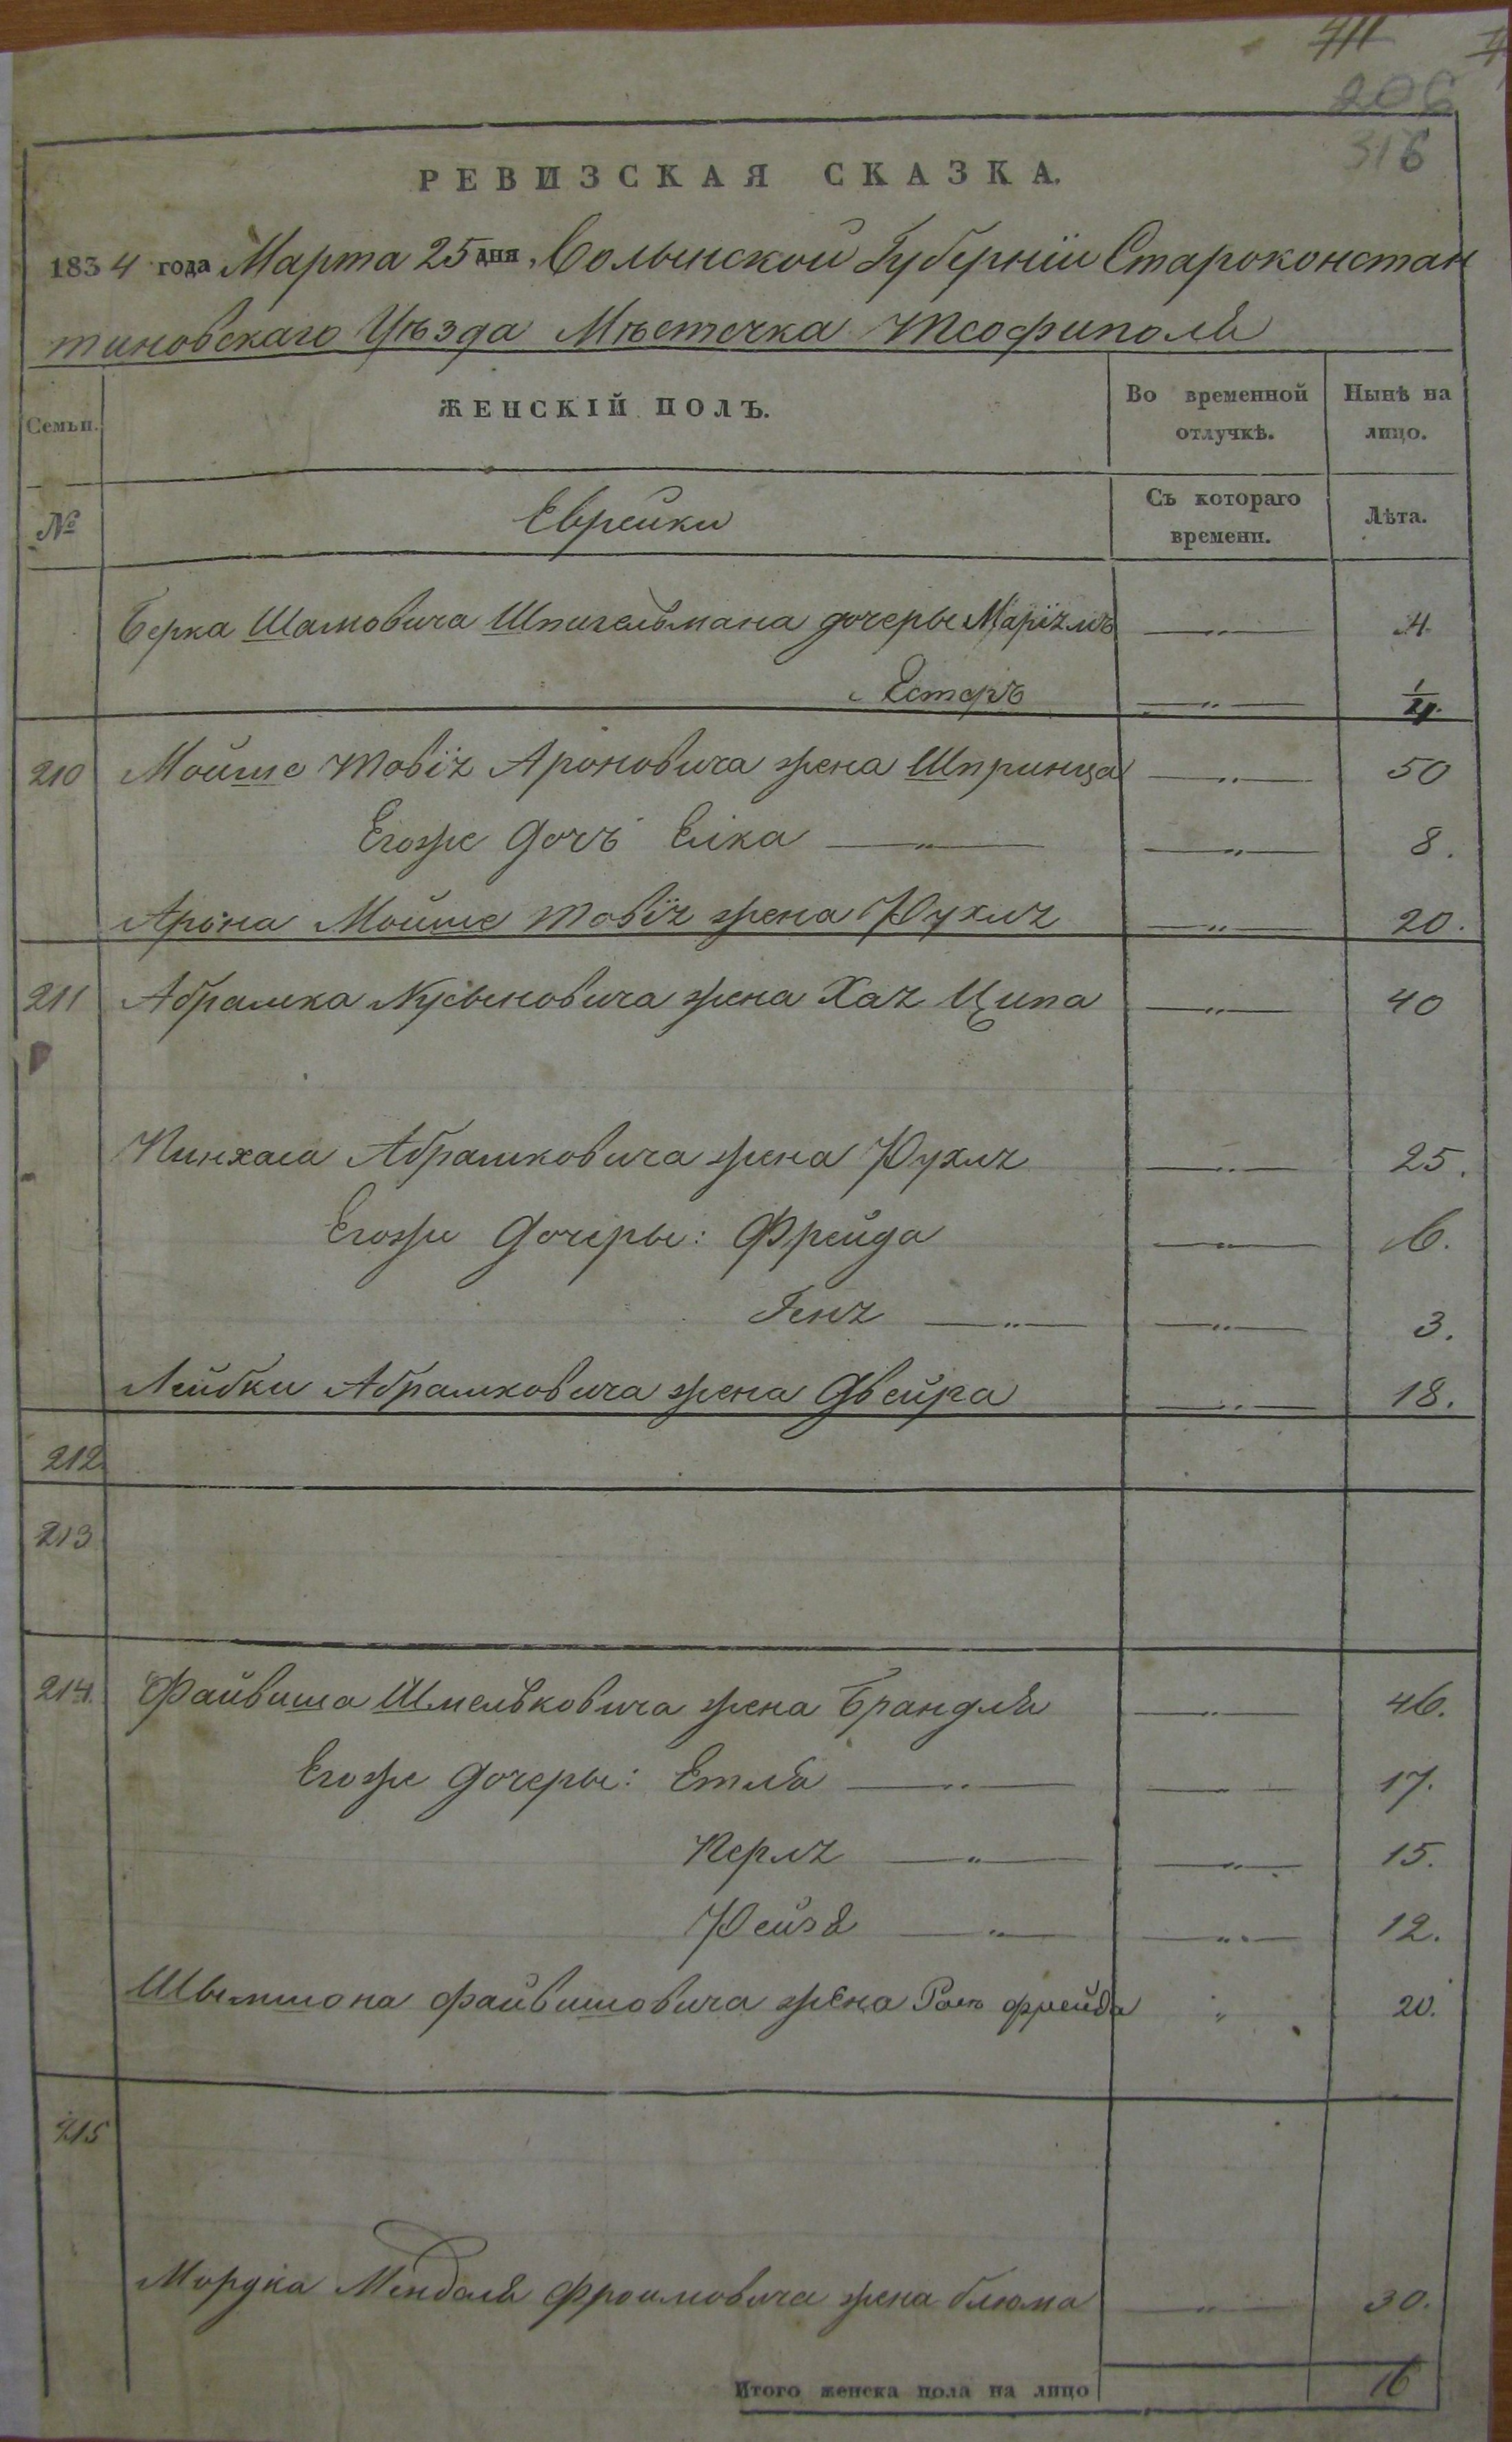 711
206
316
РЕВИЗСКАЯ СКАЗКА.
1834 года Марта 25 дня, Волынской Губерніи Староконстан
тиновскаго Уѣзда Мѣстечка Теофиполя
Семьи. ЖЕНСКІЙ ПОЛЪ. Во временной отлучкѣ. Нынѣ на лицо.
№ Еврейки Съ котораго времени. Лѣта.
Берка Шамовича Шпигельмана дочеры Маріямъ —„— 4.
Естеръ —„— 1/4.
210 Мойше Товія Ароновича жена Шпринца —„— 50
Егоже дочъ Елка —„— —„— 8.
Арона Мойше Товія жена Рухля —„— 20.
211 Абрамка Нусыновича жена Хая Ципа —„— 40
Пинхаса Абрамковича жена Рухля —„— 25.
Егоже дочеры: Фрейда —„— 6.
Геня —„— —„— 3.
Лейбки Абрамковича жена Двейра —„— 18.
212.
213
214. Файвиша Шмельковича жена Брандля —„— 46.
Егоже дочеры: Етля —„— —„— 17.
Перля —„— —„— 15.
Рейзя —„— —„— 12.
Шымшона файвишовича жена фрейда „ 20.
215
Мордка Мендаля Фроимовича жена блюма —„— 30.
Итого женска пола на лицо 16